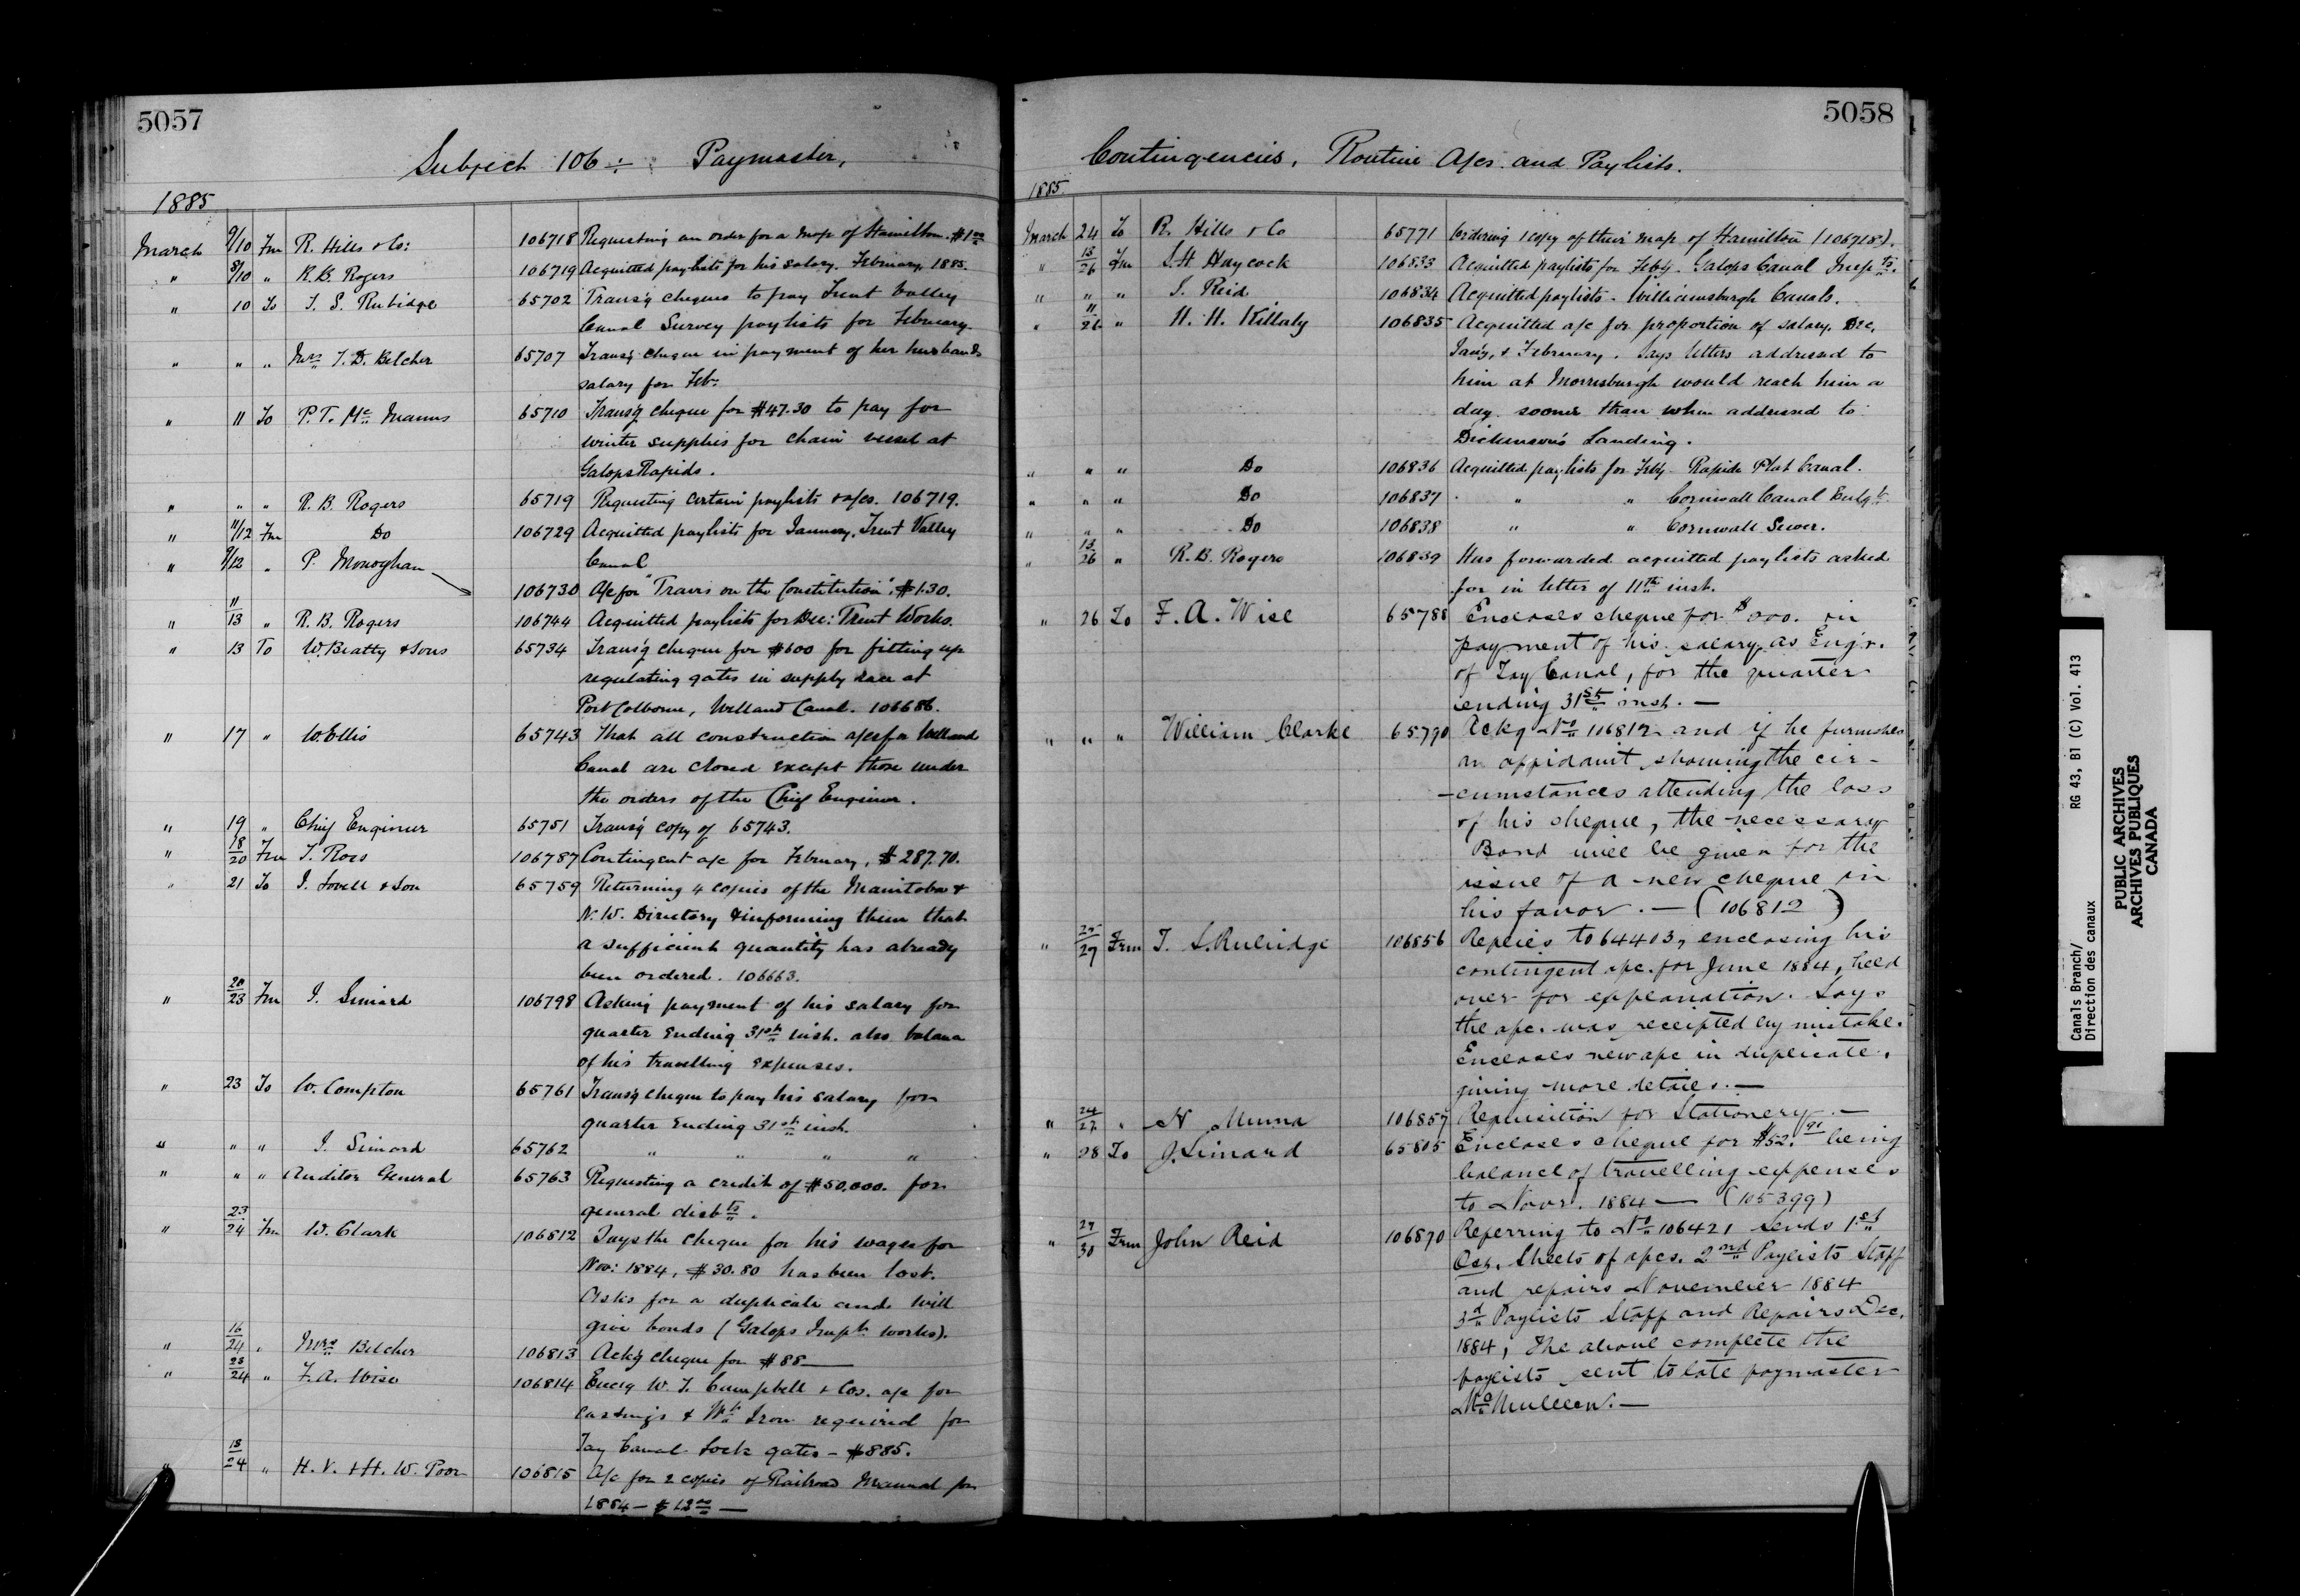 5057
Subject 106 ÷ Paymaster,
1885
March 9/10 Fm R. Hills & Co: 106718 Requesting an order for a map of Hamilton. $1.00
" 8/10 " R. B. Rogers 106719 Acquitted paylists for his salary. February 1885.
" 10 To T. S. Rubidge 65702 Transg cheques to pay Trent Valley
Canal Survey paylists for February.
" " " Mrs T. D. Belcher 65707 Transg cheque in payment of her husbands
salary for Feb:
" 11 To P. T. Mc Manus 65710 Transg cheque for $47.30 to pay for
winter supplies for chain vessel at
Galops Rapids.
" " " R. B. Rogers 65719 Requesting certain paylists & a/cs. 106719.
" 11/12 Fm Do 106729 Acquitted paylists for January. Trent Valley
Canal
" 9/12 " P. Monoghan 106730 A/c for "Travis on the Constitution". $1.30.
" 11/13 " R. B. Rogers 106744 Acquitted paylists for Dec: Trent Works.
" 13 To W. Beatty & Sons 65734 Transg cheque for $600 for fitting up
regulating gates in supply race at
Port Colborne, Welland Canal. 106686.
" 17 " W. Ellis 65743 That all construction a/cs for Welland
Canal are closed except those under
the orders of the Chief Engineer.
" 19 " Chief Engineer 65751 Transg copy of 65743.
" 18/20 Fm T. Ross 106787 Contingent a/c for February, $287.70.
" 21 To J. Lovell & Son 65759 Returning 4 copies of the Manitoba &
N. W. Directory & informing them that
a sufficient quantity has already
been ordered. 106663.
" 20/23 Fm J. Simard 106798 Asking payment of his salary for
quarter ending 31st inst. also balance
of his travelling expenses.
" 23 To W. Compton 65761 Transg cheque to pay his salary for
quarter ending 31st inst.
" " " J. Simard 65762 " " " "
" " " Auditor General 65763 Requesting a credit of $50,000. for
general disbts.
" 23/24 Fm W. Clark 106812 Says the cheque for his wages for
Nov: 1884, $30.80 has been lost.
Asks for a duplicate and will
give bonds (Galops Impt works).
" 16/24 " Mrs Belcher 106813 Ackg cheque for $88—
" 23/24 " F. A. Wise 106814 Enclg W. T. Campbell & Cos. a/c for
castings & Wt Iron required for
Tay Canal Lock gates - $885.
" 18/24 " H. V. & H. W. Poor 106815 A/c for 2 copies of Railroad Manual for
1884 - $12.00 —
5058
Contingencies, Routine A/cs. and Paylists.
1885
March 24 To R. Hills & Co 65771 Ordering 1 copy of their map of Hamilton (106718).
" 13/26 Fm S. H. Haycock 106833 Acquitted paylists for Feby. Galops Canal Impts.
" " " J. Reid 106834 Acquitted paylists - Williamsburgh Canals.
" 11/26 " H. H. Killaly 106835 Acquitted a/c for proportion of salary. Dec,
Jany, & February. Says letters addressed to
him at Morrisburgh would reach him a
day sooner than when addressed to
Dickinson's Landing.
" " " Do 106836 Acquitted paylists for Feby - Rapide Plat Canal.
" " " Do 106837 " " Cornwall Canal Enlgt.
" " " Do 106838 " " Cornwall Sewer.
" 13/26 " R. B. Rogers 106839 Has forwarded acquitted paylists asked
for in letter of 11th inst.
" 26 To F. A. Wise 65788 Encloses cheque for in
payment of his salary as Engr.
of Tay Canal, for the quarter
ending 31st inst. —
" " " William Clarke 65790 Ackg No 106812 and if he furnishes
an affidavit showing the cir-
-cumstances attending the loss
of his cheque, the necessary
Bond will be given for the
issue of a new cheque in
his favor. — (106812)
" 25/27 Frm T. S. Rubidge 106856 Replies to 64403, enclosing his
contingent a/c. for June 1884, held
over for explanation. Says
the a/c. was receipted by mistake.
Encloses new a/c in duplicate,
giving more details. —
" 24/27 " N Munro 106857 Requisition for Stationery. —
" 28 To J. Simard 65805 Encloses cheque for $52.91 being
balance of travelling expenses
to Novr. 1884 — (105399)
" 27/30 Frm John Reid 106870 Referring to No 106421 Sends 1st
Sheets of a/cs. 2nd Paylists Staff
and repairs November 1884
3d Paylists Staff and Repairs Dec.
1884, The above complete the
paylists sent to late paymaster
McMullen. —
Canals Branch/
Direction des canaux
RG 43, B1 (C) Vol. 413
PUBLIC ARCHIVES
ARCHIVES PUBLIQUES
CANADA